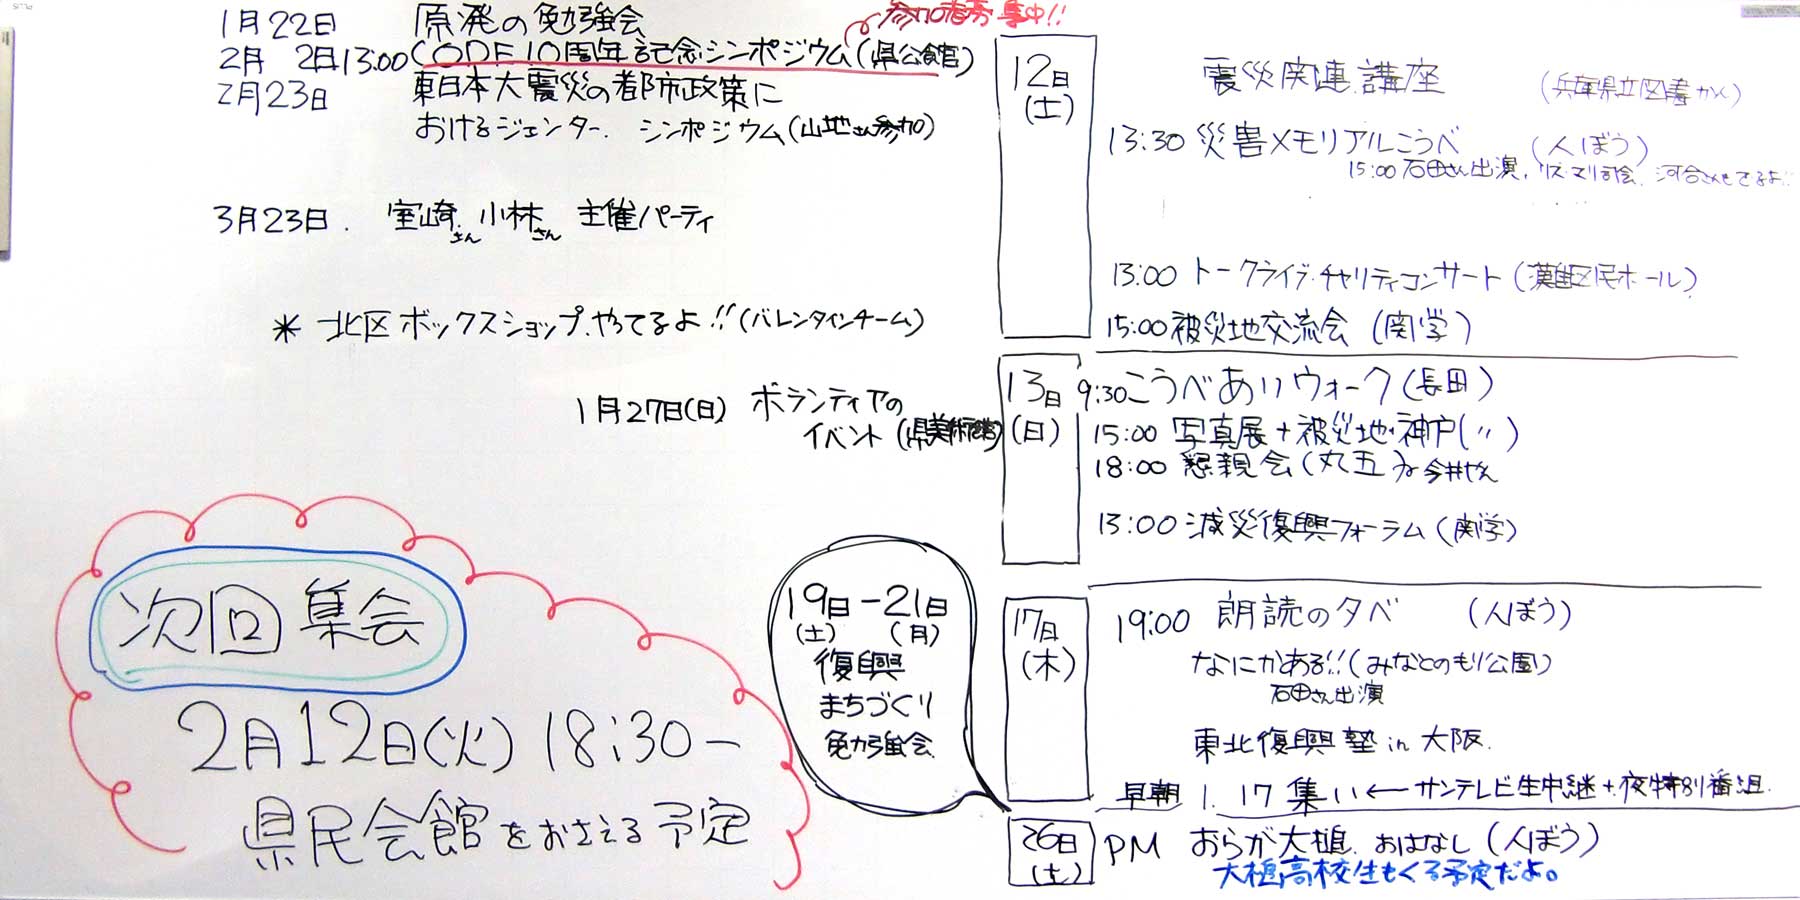 参加者募集中!!
1月22日 原発の勉強会
2月 2日13:00 CODE10周年記念シンポジウム(県公館)
2月23日 東日本大震災の都市政策に
おけるジェンター. シンポジウム(山地さん参加)
3月23日. 室崎さん 小林さん 主催パーティ
* 北区ボックスショップ.やってるよ!!(バレンタインチーム)
1月27日(日) ボランティアの
イベント(県美術館)
次回 集会
2月12日(火) 18:30ー
県民会館をおさえる予定
12日
(土)
震災関連.講座 (兵庫県立図書かん)
13:30 災害メモリアルこうべ (人ぼう)
15:00 石田さん出演,リズ・マリ司会、河合さんもでるよ!!
13:00 トークライブ・チャリティコンサート(灘区民ホール)
15:00 被災地交流会 (関学)
13日
(日)
9:30 こうべあいウォーク(長田)
15:00 写真展+被災地・神戸(〃)
18:00 懇親会(丸五)
13:00 減災復興フォーラム(関学)
19日-21日
(土) (月)
復興
まちづくり
勉強会
17日
(木)
19:00 朗読の夕べ (人ぼう)
なにかある!!(みなとのもり公園)
石田さん出演
東北復興塾 in 大阪.
早朝 1.17集い←サンテレビ生中継+夜特別番組.
26日
(土)
PM おらが大槌.おはなし(人ぼう)
大槌高校生もくる予定だよ。